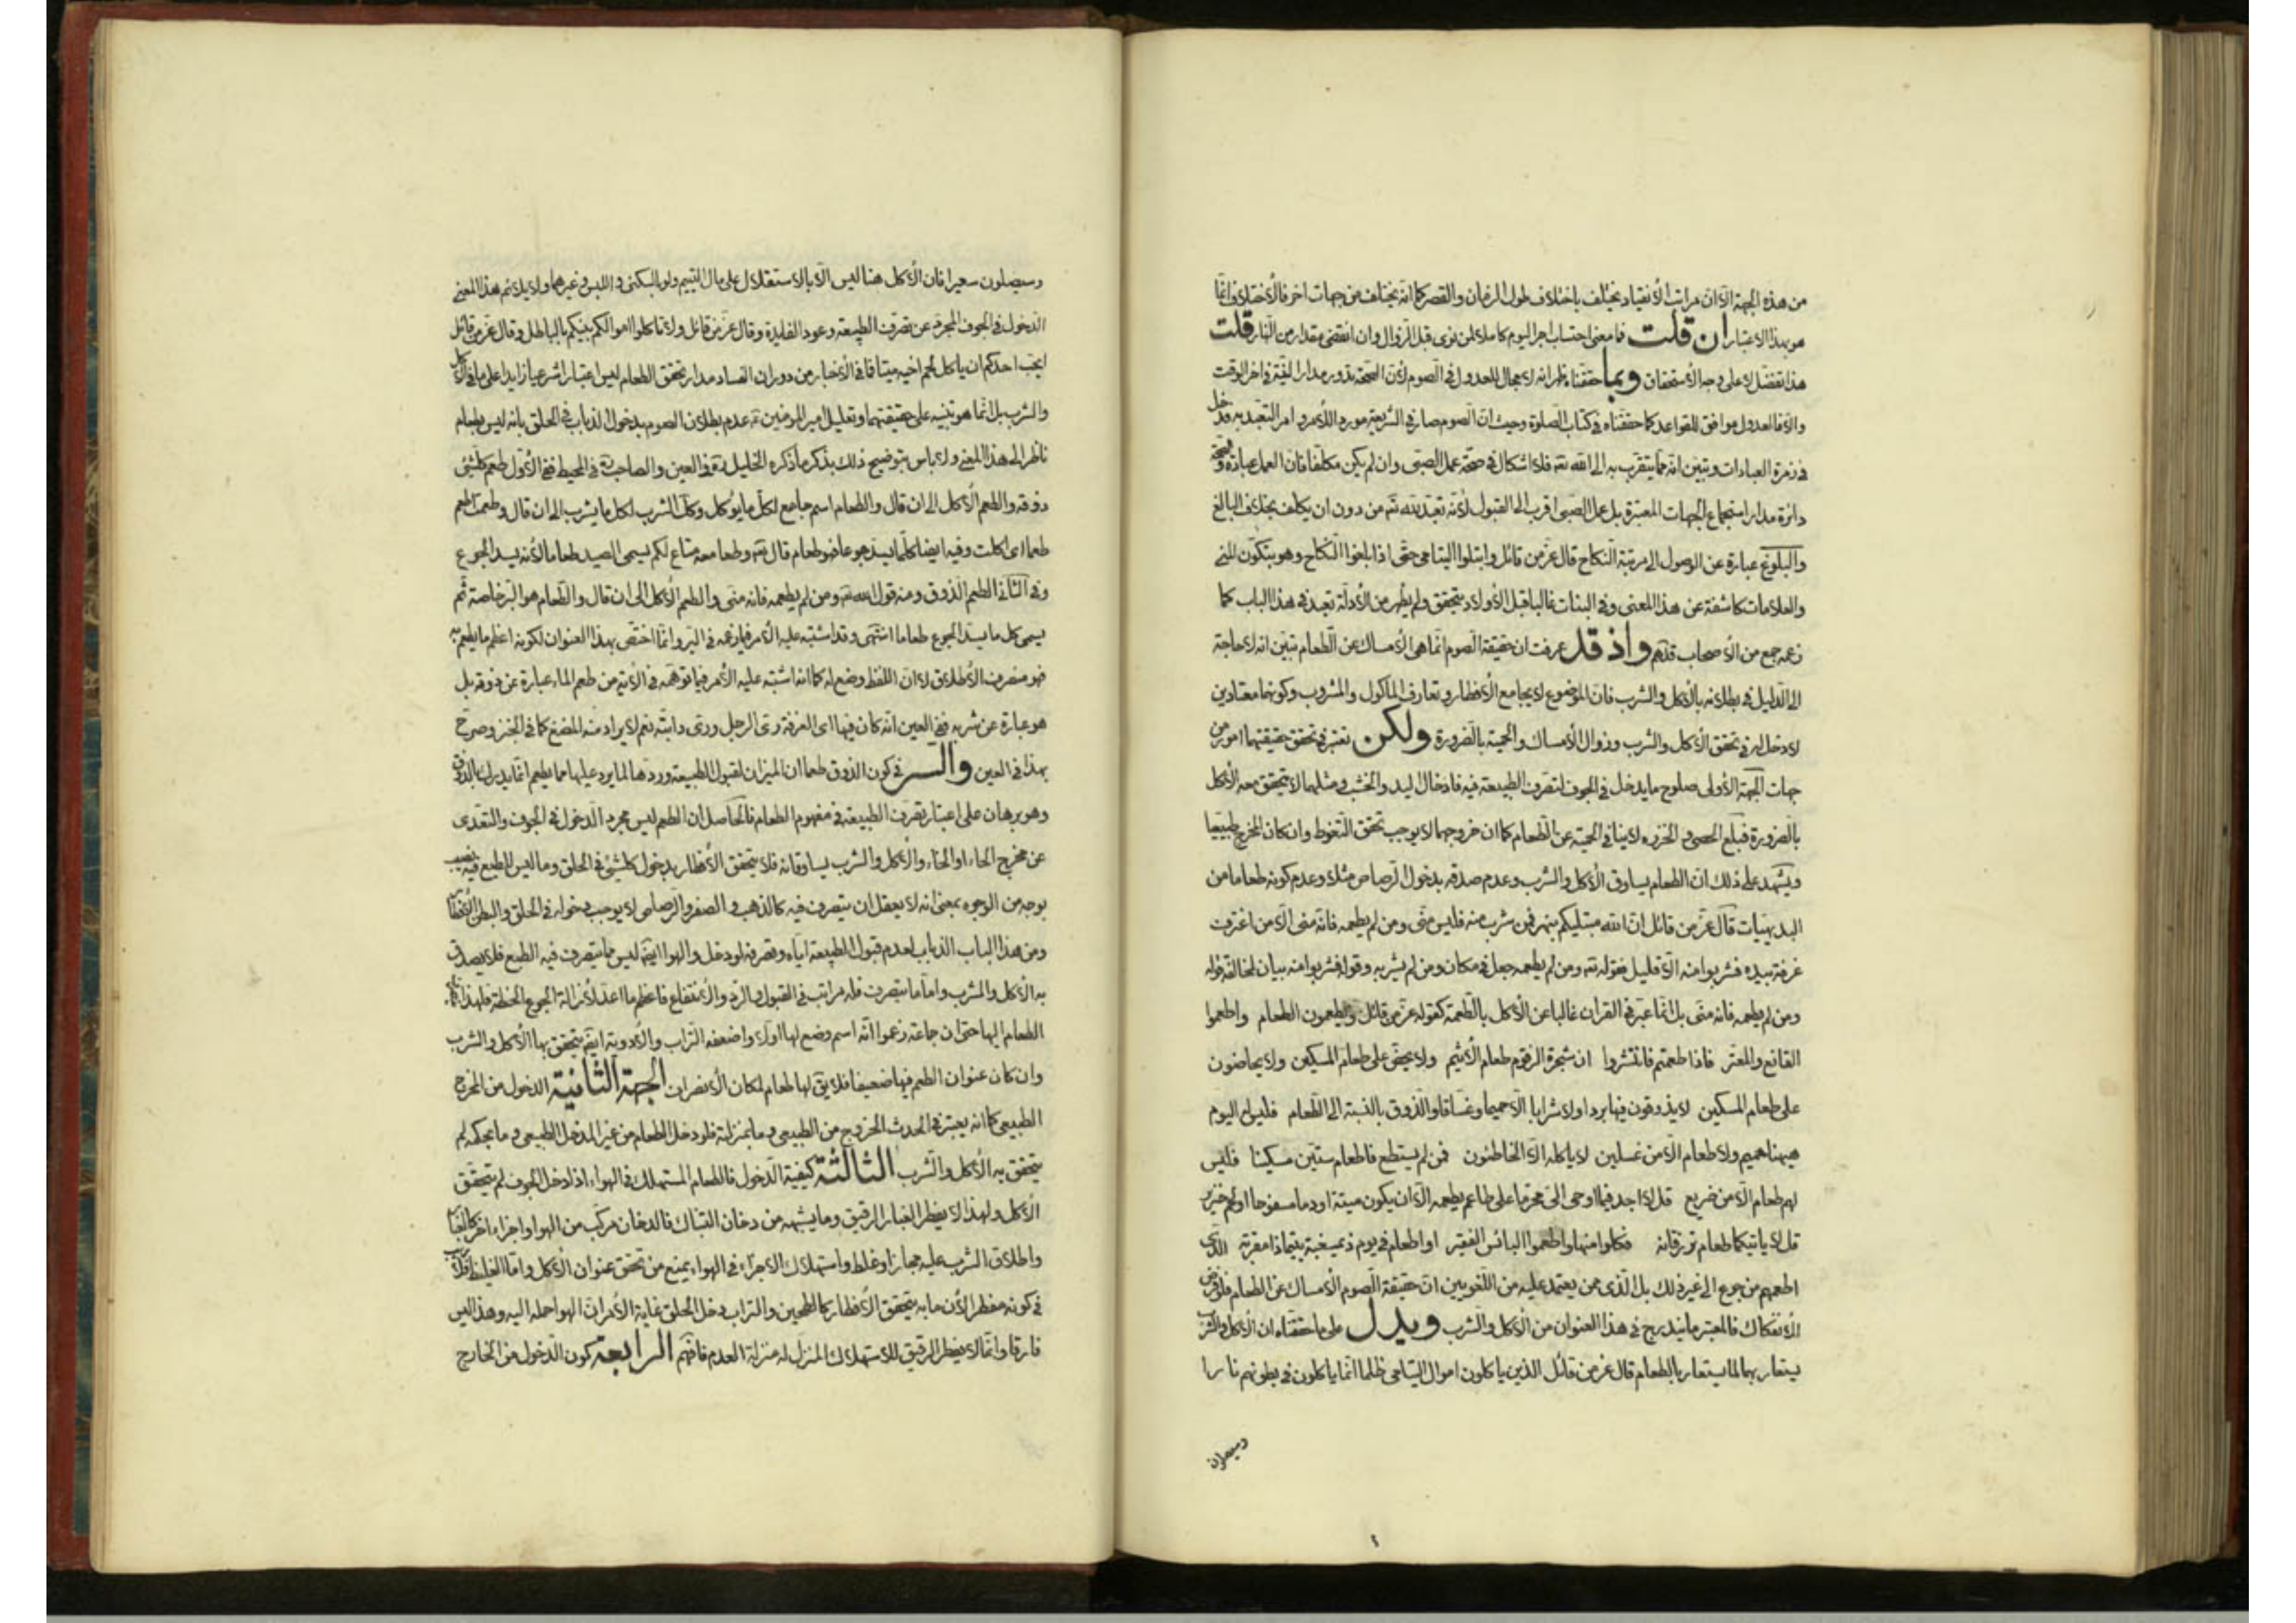 من هذه الجهة الا ان مراتب الأنقياد يختلف باختلاف طول الزمان والقصر كما انه يختلف من جهات اخر فالأختلاف انما
هو بهذا الاعتبار ان قلت فما معنى احتساب اجر اليوم كاملا لمن نوى قبل الزوال وان انقضى مقدار من النهار قلت
هذا تفضل لا على وجه الأستحقاق وبما حققناه ظهر انه لا مجال للعدول في الصوم لأن الصحة تدور مدار النية في اخر الوقت
والا فالعدول موافق للقواعد كما حققناه في كتاب الصلوة وحيث ان الصوم صار في الشريعة مورد اللأمر وامر التعبد به قد دخل
في زمرة العبادات وتبين انه مما يتقرب به الى الله تعه فلا اشكال في صحة عمل الصبي وان لم يكن مكلفا فان العمل عبادة والصحة
دائرة مدار استجماع الجهات المعتبرة بل عمل الصبي اقرب الى القبول لأنه تعبد لله تعه من دون ان يكلف بخلاف البالغ
والبلوغ عبارة عن الوصول الى مرتبة النكاح قال عز من قائل وابتلوا اليتامى حتى اذا بلغوا النكاح وهو بتكون المني
والعلامات كاشفة عن هذا المعنى وفي البنات غالبا قبل الأولاد يتحقق ولم يظهر من الأدلة تعبد في هذا الباب كما
زعمه جمع من الأصحاب قدهم واذ قد عرفت ان حقيقة الصوم انما هي الأمساك عن الطعام تبين انه لا حاجة
الى الدليل في بطلانه بالأكل والشرب فان الموضوع لا يجامع الأفطار وتعارف المأكول والمشروب وكونهما معتادين
لا دخل له في تحقق الأكل والشرب وزوال الأمساك والحمية بالضرورة ولكن تعتبر في تحقق حقيقتهما امور من
جهات الجهة الأولى صلوح ما يدخل في الجوف لتصرف الطبيعة فيه فادخال اليد والخشب ومثلهما لا يتحقق معه الأكل
بالضرورة فبلع الحصى و الخرزه لا ينافي الحمية عن الطعام كما ان خروجهما لا يوجب تحقق التغوط وان كان المخرج طبيعيا
ويشهد على ذلك ان الطعام يساوق الأكل والشرب وعدم صدقه بدخول الرصاص مثلا وعدم كونه طعاما من
البديهيات قال عز من قائل ان الله مبتليكم بنهر فمن شرب منه فليس مني ومن لم يطعمه فانه مني الا من اغترف
غرفة بيده فشربوا منه الا قليل فقوله تعه ومن لم يطعمه جعل في مكان ومن لم يشربه وقوله فشربوا منه بيان لمخالفة قوله
ومن لم يطعمه فانه مني بل انما عبر في القران غالبا عن الأكل بالطعمة كقوله عز من قائل ويطعمون الطعام واطعموا
القانع والمعتر فاذا طعمتم فانتشروا ان شجرة الزقوم طعام الأثيم ولا يحض على طعام المسكين ولا يحاضون
على طعام المسكين لا يذوقون فيها بردا ولا شرابا الا حميما وغساقا والذوق بالنسبة الى الطعام فليس له اليوم
هيهنا حميم ولا طعام الا من غسلين لا يأكله الا الخاطئون فمن لم يستطع فاطعام ستين مسكينا فليس
لهم طعام الا من ضريع قل لا اجد فيما اوحى الى محرما على طاعم يطعمه الا ان يكون ميتة او دما مسفوحا او لحم خنزير
قل لا يأتيكما طعام ترزقانه فكلوا منها واطعموا البائس الفقير او اطعام في يوم ذي مسغبة يتيما ذا مقربة الذي
اطعمهم من جوع الى غير ذلك بل الذى ممن يعتمد عليه من اللغويين ان حقيقة الصوم الأمساك عن الطعام فلو فرض
الأنفكاك فالمعتبر ما يندرج في هذا العنوان من الأكل والشرب ويدل على ما حققناه ان الأكل والشرب
يستعار بهما لما يستعار بالطعام قال عز من قائل الذين ياكلون اموال اليتامى ظلما انما ياكلون في بطونهم نارا
وسيصلون
وسيصلون سعيرا فان الأكل هنا ليس الا بالاستقلال على مال اليتيم ولو بالسكنى واللبس وغيرهما ولا يلائم هذا المعنى
الدخول في الجوف المجرد عن تصرف الطبيعة وعود الفايدة وقال عز من قائل ولا تاكلوا اموالكم بينكم بالباطل وقال عز من قائل
ايحب احدكم ان ياكل لحم اخيه ميتا فما في الأخبار من دوران الفساد مدار تحقق الطعام ليس اعتبارا شرعيا زايدا على ما في الأكل
والشرب بل انما هو تنبيه على حقيقتهما وتعليل امير المؤمنين عه عدم بطلان الصوم بدخول الذباب في الحلق بانه ليس بطعام
ناظر الى هذا المعنى ولا باس بتوضيح ذلك بذكر ما ذكره الخليل ره في العين والصاحب ره في المحيط ففي الأول طعم كلشئ
ذوقه والطعم الأكل الى ان قال والطعام اسم جامع لكل ما يؤكل وكل الشرب لكل ما يشرب الى ان قال وطعمت اطعم
طعما اى اكلت وفيه ايضا كلما يسد جوعا فهو طعام قال تعه وطعامه متاع لكم يسمى الصيد طعاما لأنه يسد الجوع
وفي الثاني الطعم الذوق ومنه قول الله تعه ومن لم يطعمه فانه مني والطعم الأكل الى ان قال والطعام هو البر خاصة ثم
يسمى كل ما يسد الجوع طعاما انتهى وقد اشتبه عليه الأمر فيما زعمه في البر وانما اختص بهذا العنوان لكونه اعظم ما يطعم به
فهو منصرف الأطلاق لا ان اللفظ وضع له كما انه اشتبه عليه الأمر فيما توهمه في الأية من طعم الماء عبارة عن ذوقه بل
هو عبارة عن شربه ففي العين انه كان فيها اى الغرفة رى الرجل ورى دابته نعم لا يراد منه المضغ كما في الخبز وصرح
بهذا في العين والسر في كون الذوق طعما ان الميزان لقبول الطبيعة وردها لما يرد عليها مما يطعم انما يدرك بالذوق
وهو برهان على اعتبار تصرف الطبيعة في مفهوم الطعام فالحاصل ان الطعم ليس مجرد الدخول في الجوف والتعدى
عن مخرج الحاء او الخاء والأكل والشرب يساوقانه فلا يتحقق الأفطار بدخول كلشئ في الحلق وما ليس للطبع فيه نصيب
بوجه من الوجوه بمعنى انه لا يعقل ان يتصرف فيه كالذهب و الصفر والرصاص لا يوجب دخوله في الحلق والبطن الأفطار
ومن هذا الباب الذباب لعدم قبول الطبيعة اياه وتصرفه لو دخل والهوا ايضا ليس مما يتصرف فيه الطبع فلا يصدق
به الأكل والشرب واما ما يتصرف فله مراتب في القبول والرد والأنتفاع فاعظم ما اعد لأزالة الجوع الحنطة فلهذا
الطعام اليها حتى ان جماعة زعموا انه اسم وضع لها اولا واضعفه التراب والأدوية ايضا يتحقق بها الأكل والشرب
وان كان عنوان الطعم فيها ضعيفا فلا يق لها طعام لمكان الأنصراف الجهة الثانية الدخول من المخرج
الطبيعي كما انه يعتبر في الحدث الخروج من الطبيعي وما بمنزلة فلو دخل الطعام من غير المدخل الطبيعي وما بحكمه لم
يتحقق به الأكل والشرب الثالثة كيفية الدخول فالطعام المستهلك في الهواء اذا دخل الجوف لم يتحقق
الأكل ولهذا لا يفطر الغبار الرقيق وما يشبهه من دخان التنباك فالدخان مركب من الهوا واجزاء اخر كالغبار
واطلاق الشرب عليه مجاز او غلط واستهلاك الاجزاء في الهواء يمنع من تحقق عنوان الأكل واما الغليظ فلا ريب
في كونه مفطرا لأن ما به يتحقق الأفطار كالطحين والتراب دخل الحلق غاية الأمر ان الهوا حمله اليه وهذا ليس
فارقا وانما لا يفطر الرقيق للاستهلاك المنزل له منزلة العدم فافهم الرابعة كون الدخول من الخارج